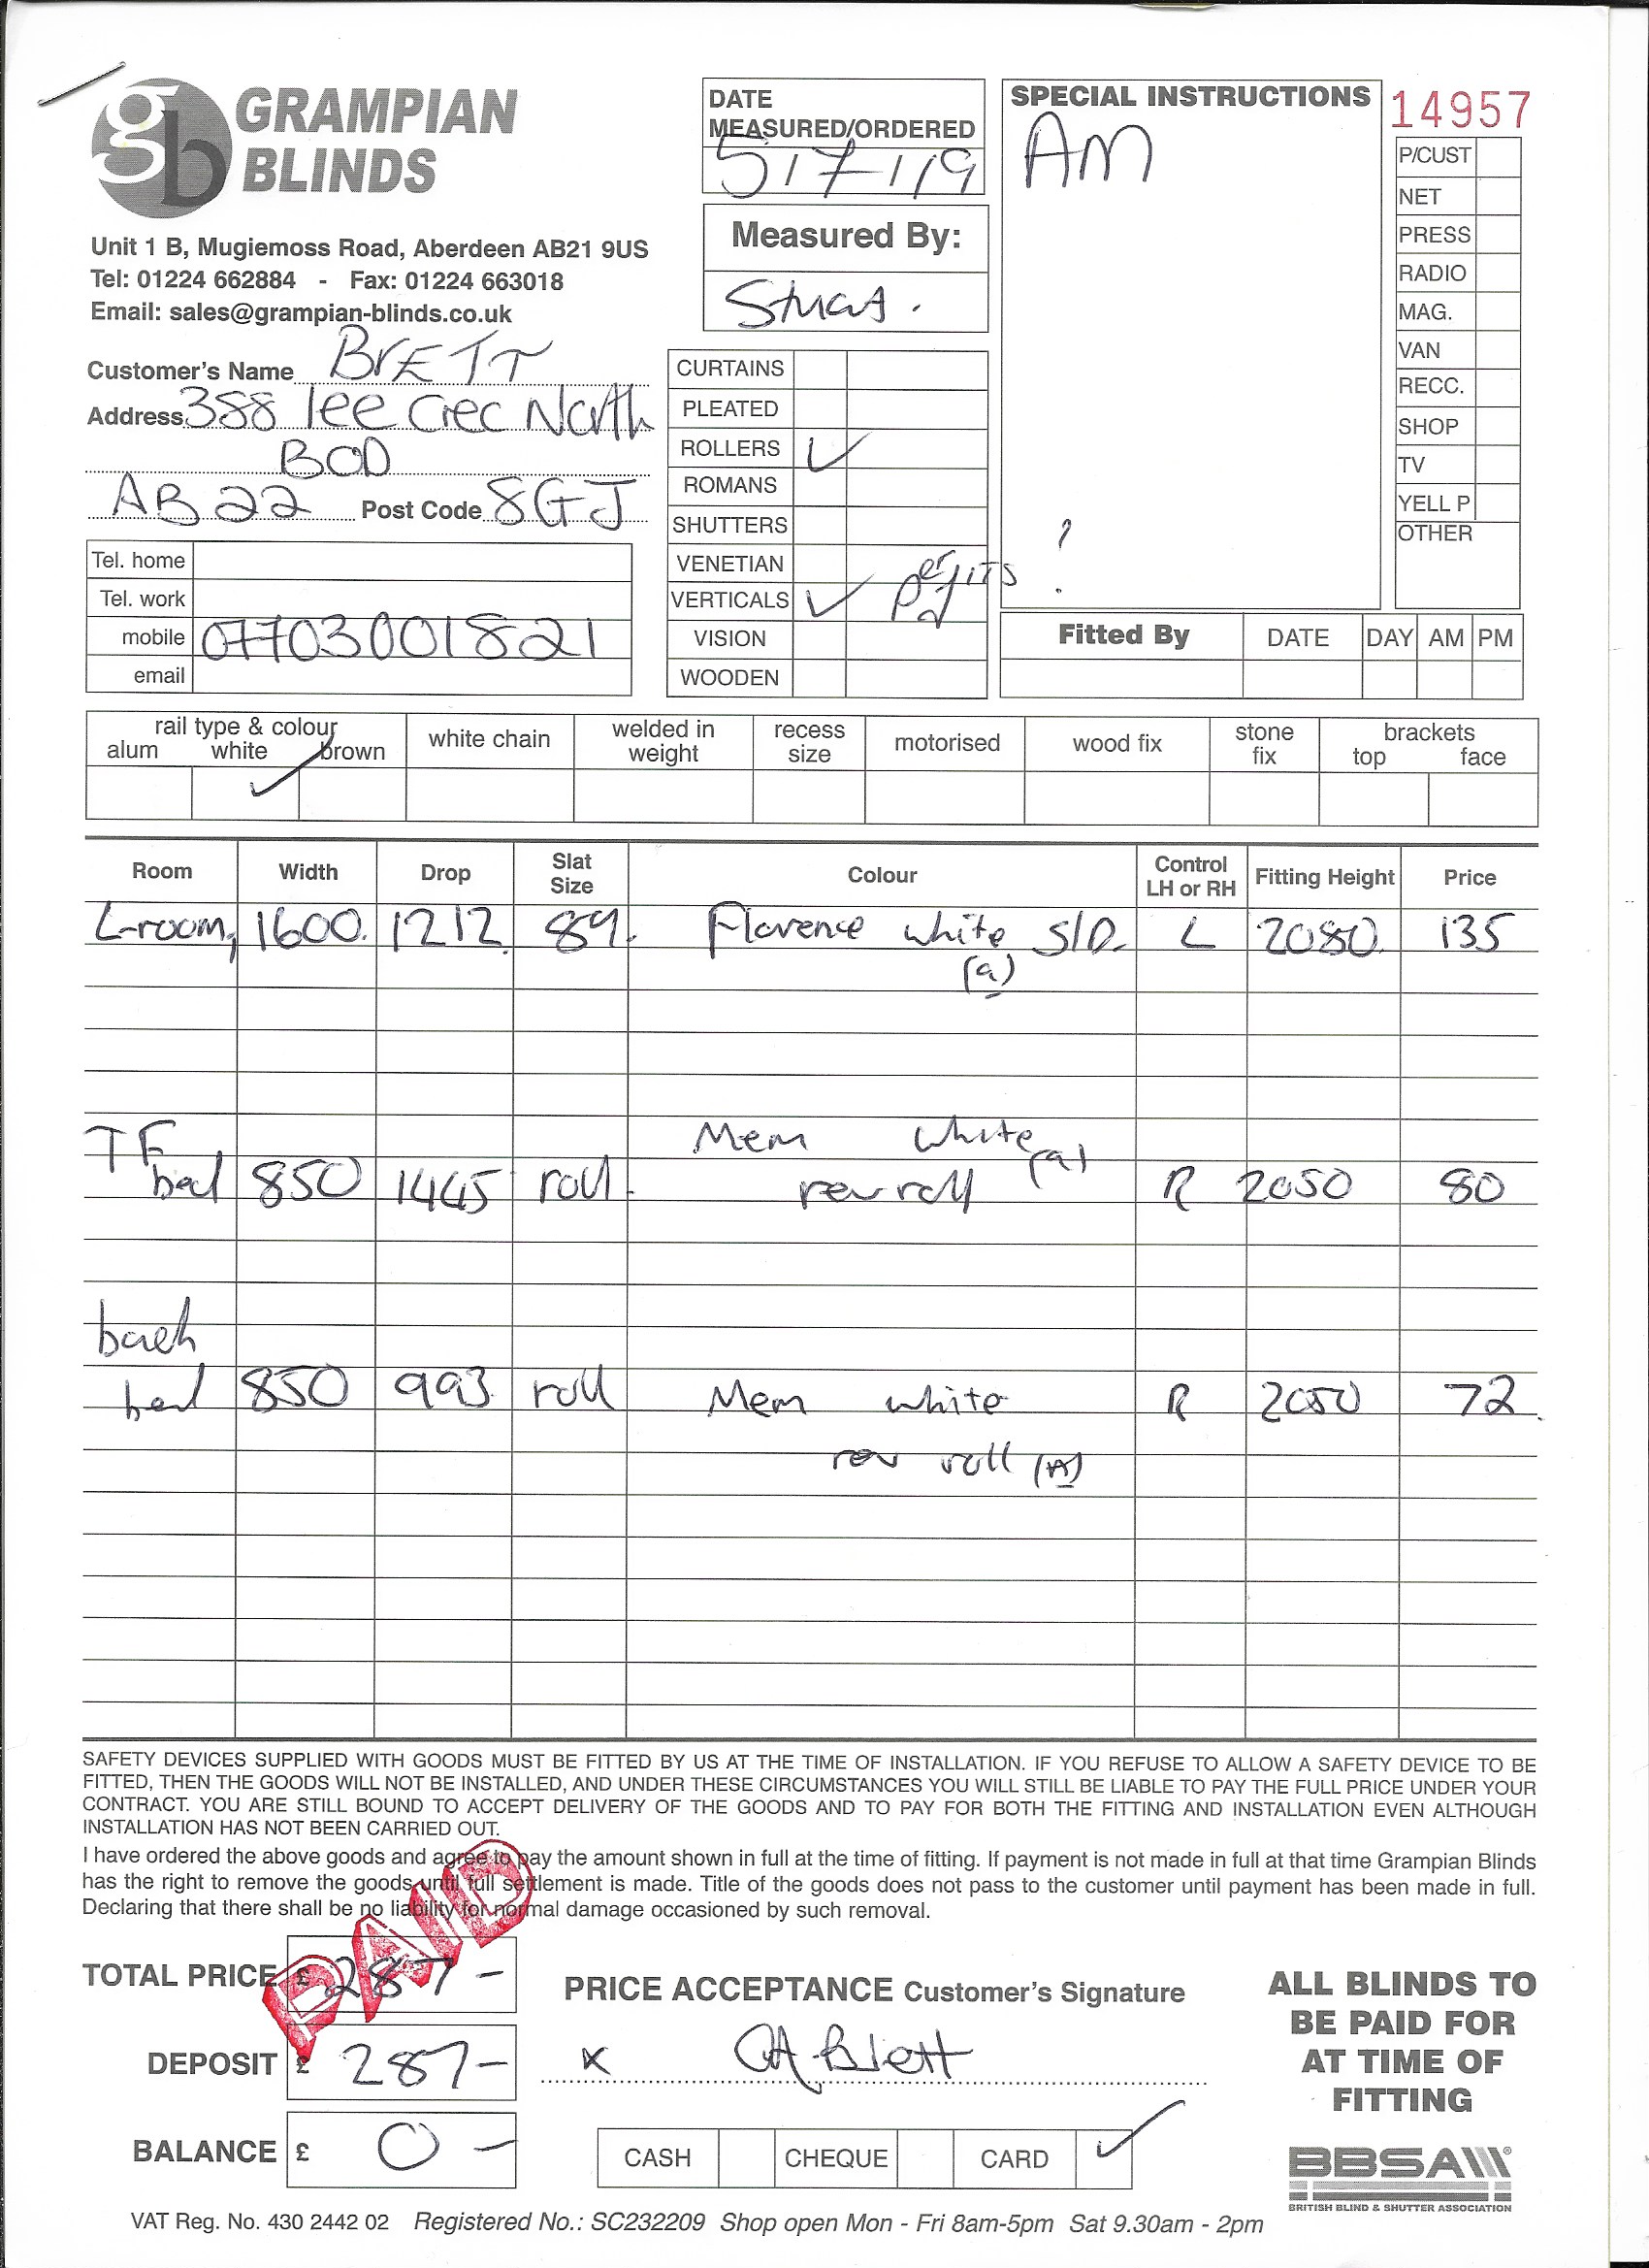 GRAMPIAN
BLINDS
gb
Unit 1 B, Mugiemoss Road, Aberdeen AB21 9US
Tel: 01224 662884 - Fax: 01224 663018
Email: sales@grampian-blinds.co.uk
DATE
MEASURED/ORDERED
5/7/19
Measured By:
SPECIAL INSTRUCTIONS
AM
?
14957
P/CUST
NET
PRESS
RADIO
MAG.
VAN
RECC.
SHOP
TV
YELL P
OTHER
Customer's Name BrETT
Address 388 lee Crec North
BOD
AB22 Post Code 8GJ
Tel. home
Tel. work
mobile 07703001821
email
CURTAINS
PLEATED
ROLLERS ✓
ROMANS
SHUTTERS
VENETIAN
VERTICALS ✓
VISION
WOODEN
Fitted By DATE DAY AM PM
rail type & colour white chain welded in weight recess size motorised wood fix stone fix brackets
alum white brown top face
✓
Room Width Drop Slat Size Colour Control LH or RH Fitting Height Price
L-room, 1600. 1212. 89. Florence white S/D. L 2080. 135
(a)
TF Mem white (a)
bed 850 1445 roll. rev roll R 2050 80
back
bed 850 993 roll Mem white R 2050 72.
rev roll (A)
SAFETY DEVICES SUPPLIED WITH GOODS MUST BE FITTED BY US AT THE TIME OF INSTALLATION. IF YOU REFUSE TO ALLOW A SAFETY DEVICE TO BE
FITTED, THEN THE GOODS WILL NOT BE INSTALLED, AND UNDER THESE CIRCUMSTANCES YOU WILL STILL BE LIABLE TO PAY THE FULL PRICE UNDER YOUR
CONTRACT. YOU ARE STILL BOUND TO ACCEPT DELIVERY OF THE GOODS AND TO PAY FOR BOTH THE FITTING AND INSTALLATION EVEN ALTHOUGH
INSTALLATION HAS NOT BEEN CARRIED OUT.
I have ordered the above goods and agree to pay the amount shown in full at the time of fitting. If payment is not made in full at that time Grampian Blinds
has the right to remove the goods until full settlement is made. Title of the goods does not pass to the customer until payment has been made in full.
Declaring that there shall be no liability for normal damage occasioned by such removal.
PAID
TOTAL PRICE £ 287-
DEPOSIT £ 287-
BALANCE £ 0-
PRICE ACCEPTANCE Customer's Signature
x A Brett
CASH CHEQUE CARD ✓
ALL BLINDS TO
BE PAID FOR
AT TIME OF
FITTING
BBSA
BRITISH BLIND & SHUTTER ASSOCIATION
VAT Reg. No. 430 2442 02 Registered No.: SC232209 Shop open Mon - Fri 8am-5pm Sat 9.30am - 2pm